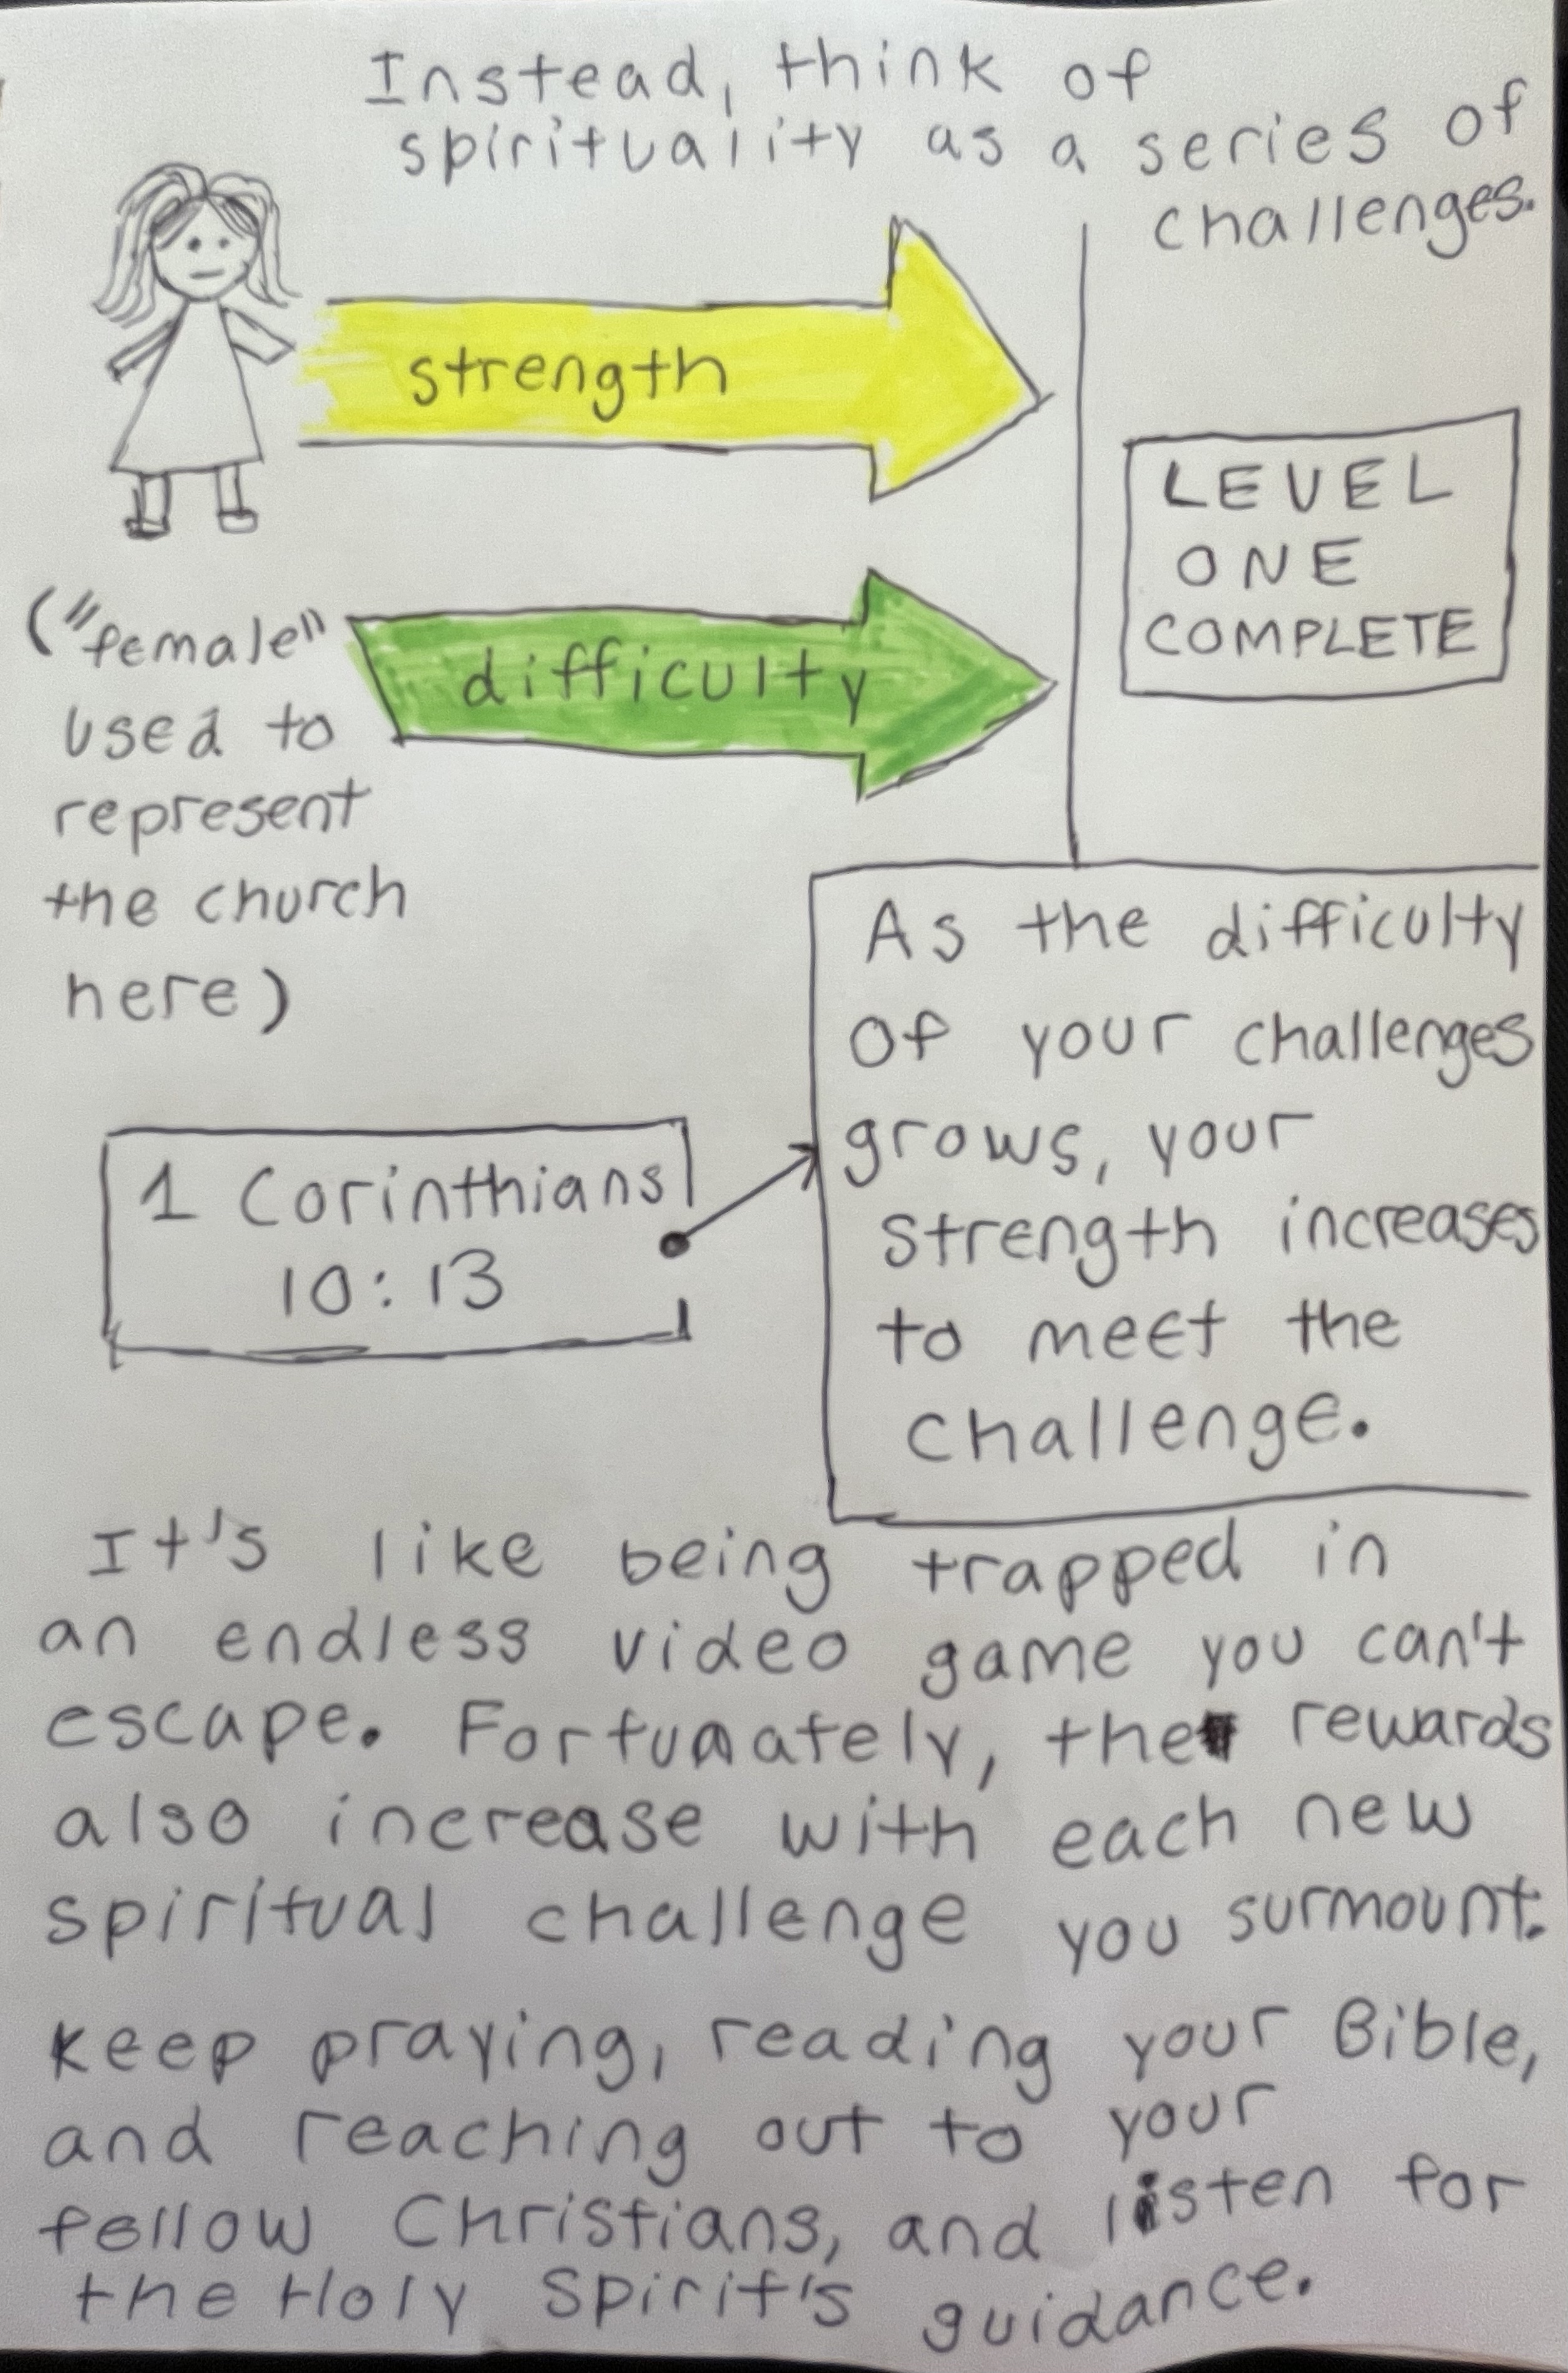 Instead, think of
spirituality as a series of
challenges.
strength
LEVEL
ONE
COMPLETE
difficulty
("female"
used to
represent
the church
here)
As the difficulty
of your challenges
grows, your
strength increases
to meet the
challenge.
1 Corinthians
10:13
It's like being trapped in
an endless video game you can't
escape. Fortunately, the rewards
also increase with each new
spiritual challenge you surmount.
Keep praying, reading your Bible,
and reaching out to your
fellow Christians, and listen for
the Holy Spirit's guidance.